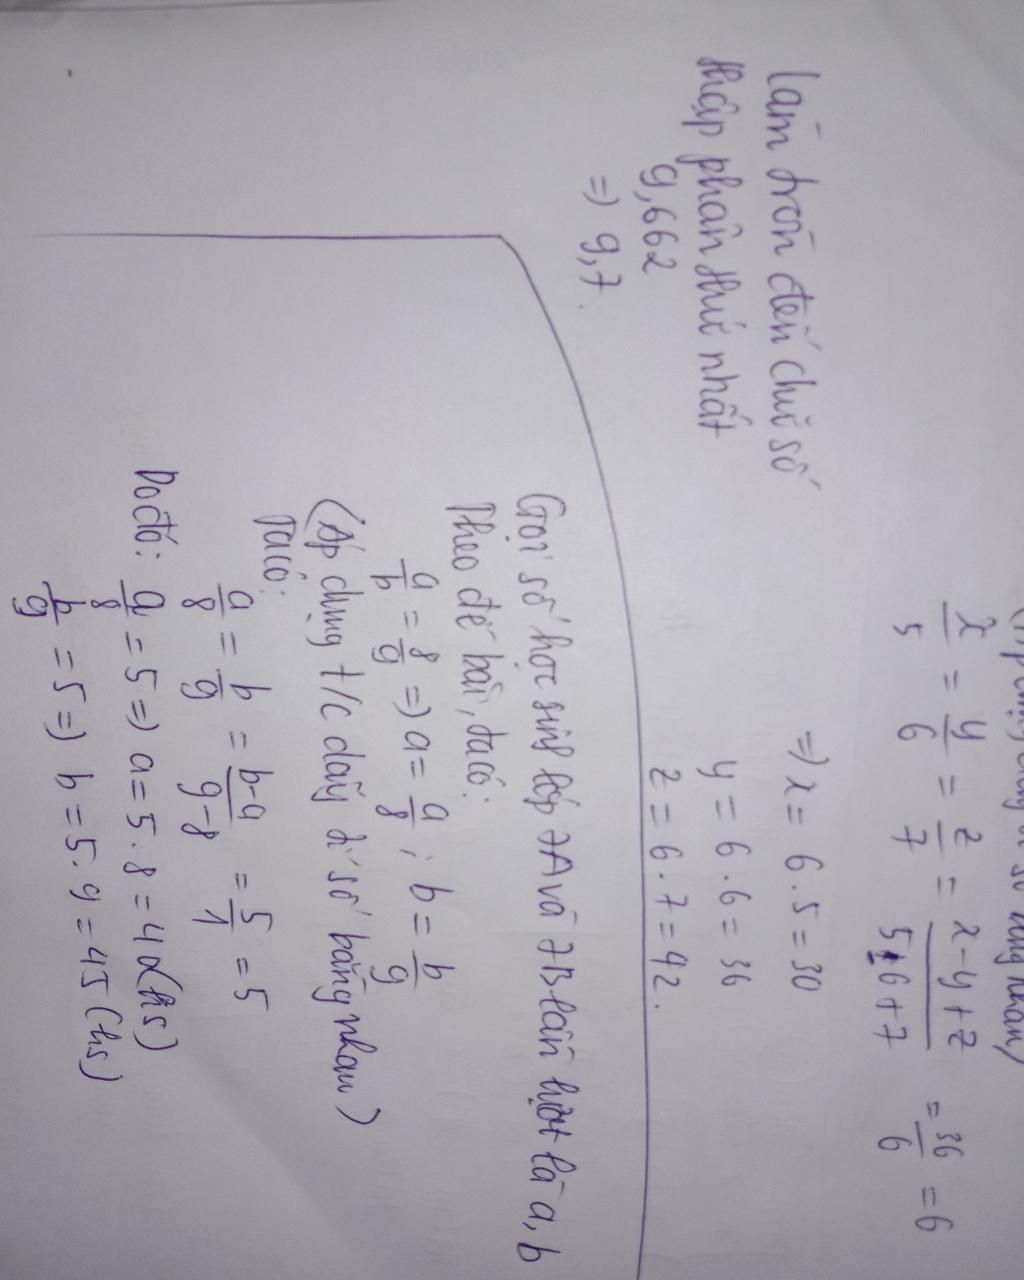 (Áp dụng dãy tỉ số bằng nhau)
x/5 = y/6 = z/7 = x-y+z/5-6+7 = 36/6 = 6
=> x = 6.5 = 30
y = 6.6 = 36
z = 6.7 = 42.
làm tròn đến chữ số
thập phân thứ nhất
9,662
=> 9,7.
Gọi số học sinh lớp 7A và 7B lần lượt là a, b
Theo đề bài, ta có:
a/b = 8/9 => a = a/8 ; b = b/9
(Áp dụng t/c dãy tỉ số bằng nhau)
Ta có:
a/8 = b/9 = b-a/9-8 = 5/1 = 5
Do đó: a/8 = 5 => a = 5.8 = 40(hs)
b/9 = 5 => b = 5.9 = 45(hs)